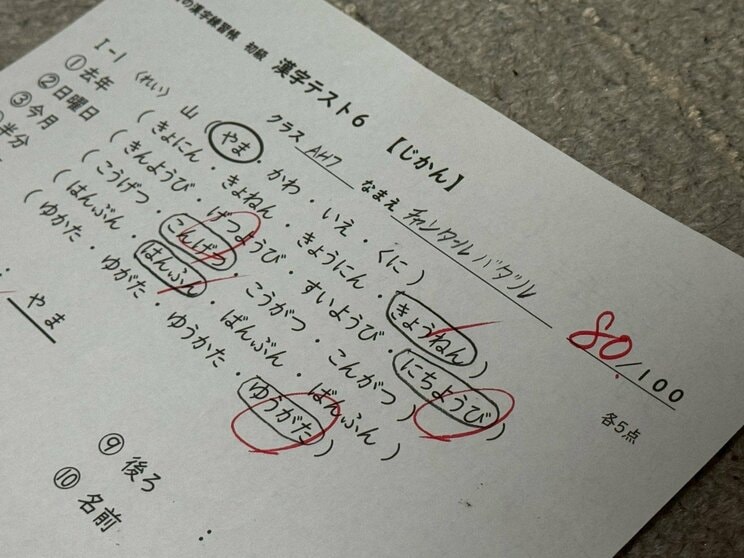 の漢字練習帳 初級 漢字テスト6 【じかん】
クラス AH7 なまえ
80/100
各5点
I-1 〈れい〉 山 (やま・かわ・いえ・くに)
①去年 (きょにん・きょねん・きょうにん・きょうねん)
②日曜日 (きんようび・げつようび・すいようび・にちようび)
③今月 (こうげつ・こんげつ・こうがつ・こんがつ)
半分 (はんぶん・はんふん・ばんぶん・ばんふん)
(ゆかた・ゆがた・ゆうかた・ゆうがた)
やま
⑨後ろ
⑩名前